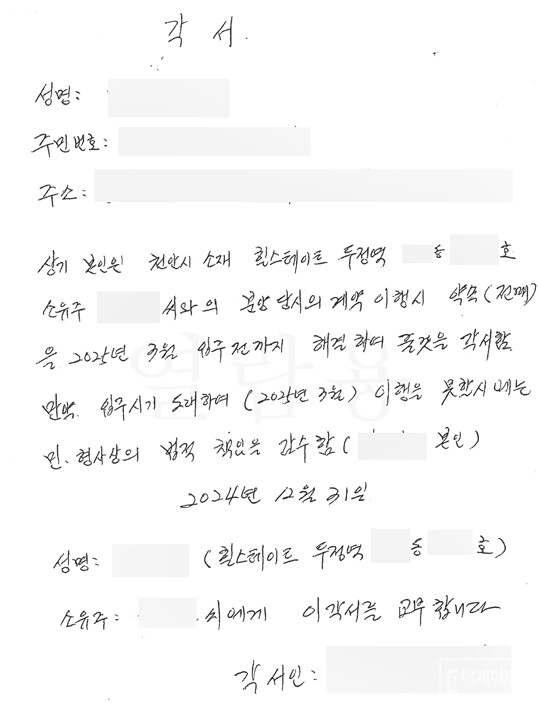 각 서.
성명:
주민번호:
주소:
상기 본인은 천안시 소재 힐스테이트 두정역 동 호
소유주 씨와의 분양 당시의 계약 이행시 약속(전매)
을 2025년 3월 입주 전까지 해결하여 줄것을 각서함
만약. 입주시기 도래하여 (2025년 3월) 이행을 못할시에는
민.형사상의 법적 책임을 감수함 ( 본인)
2024년 12월 31일
성명: (힐스테이트 두정역 동 호)
소유주: 씨에게 이각서를 교부합니다
각서인:
열람용